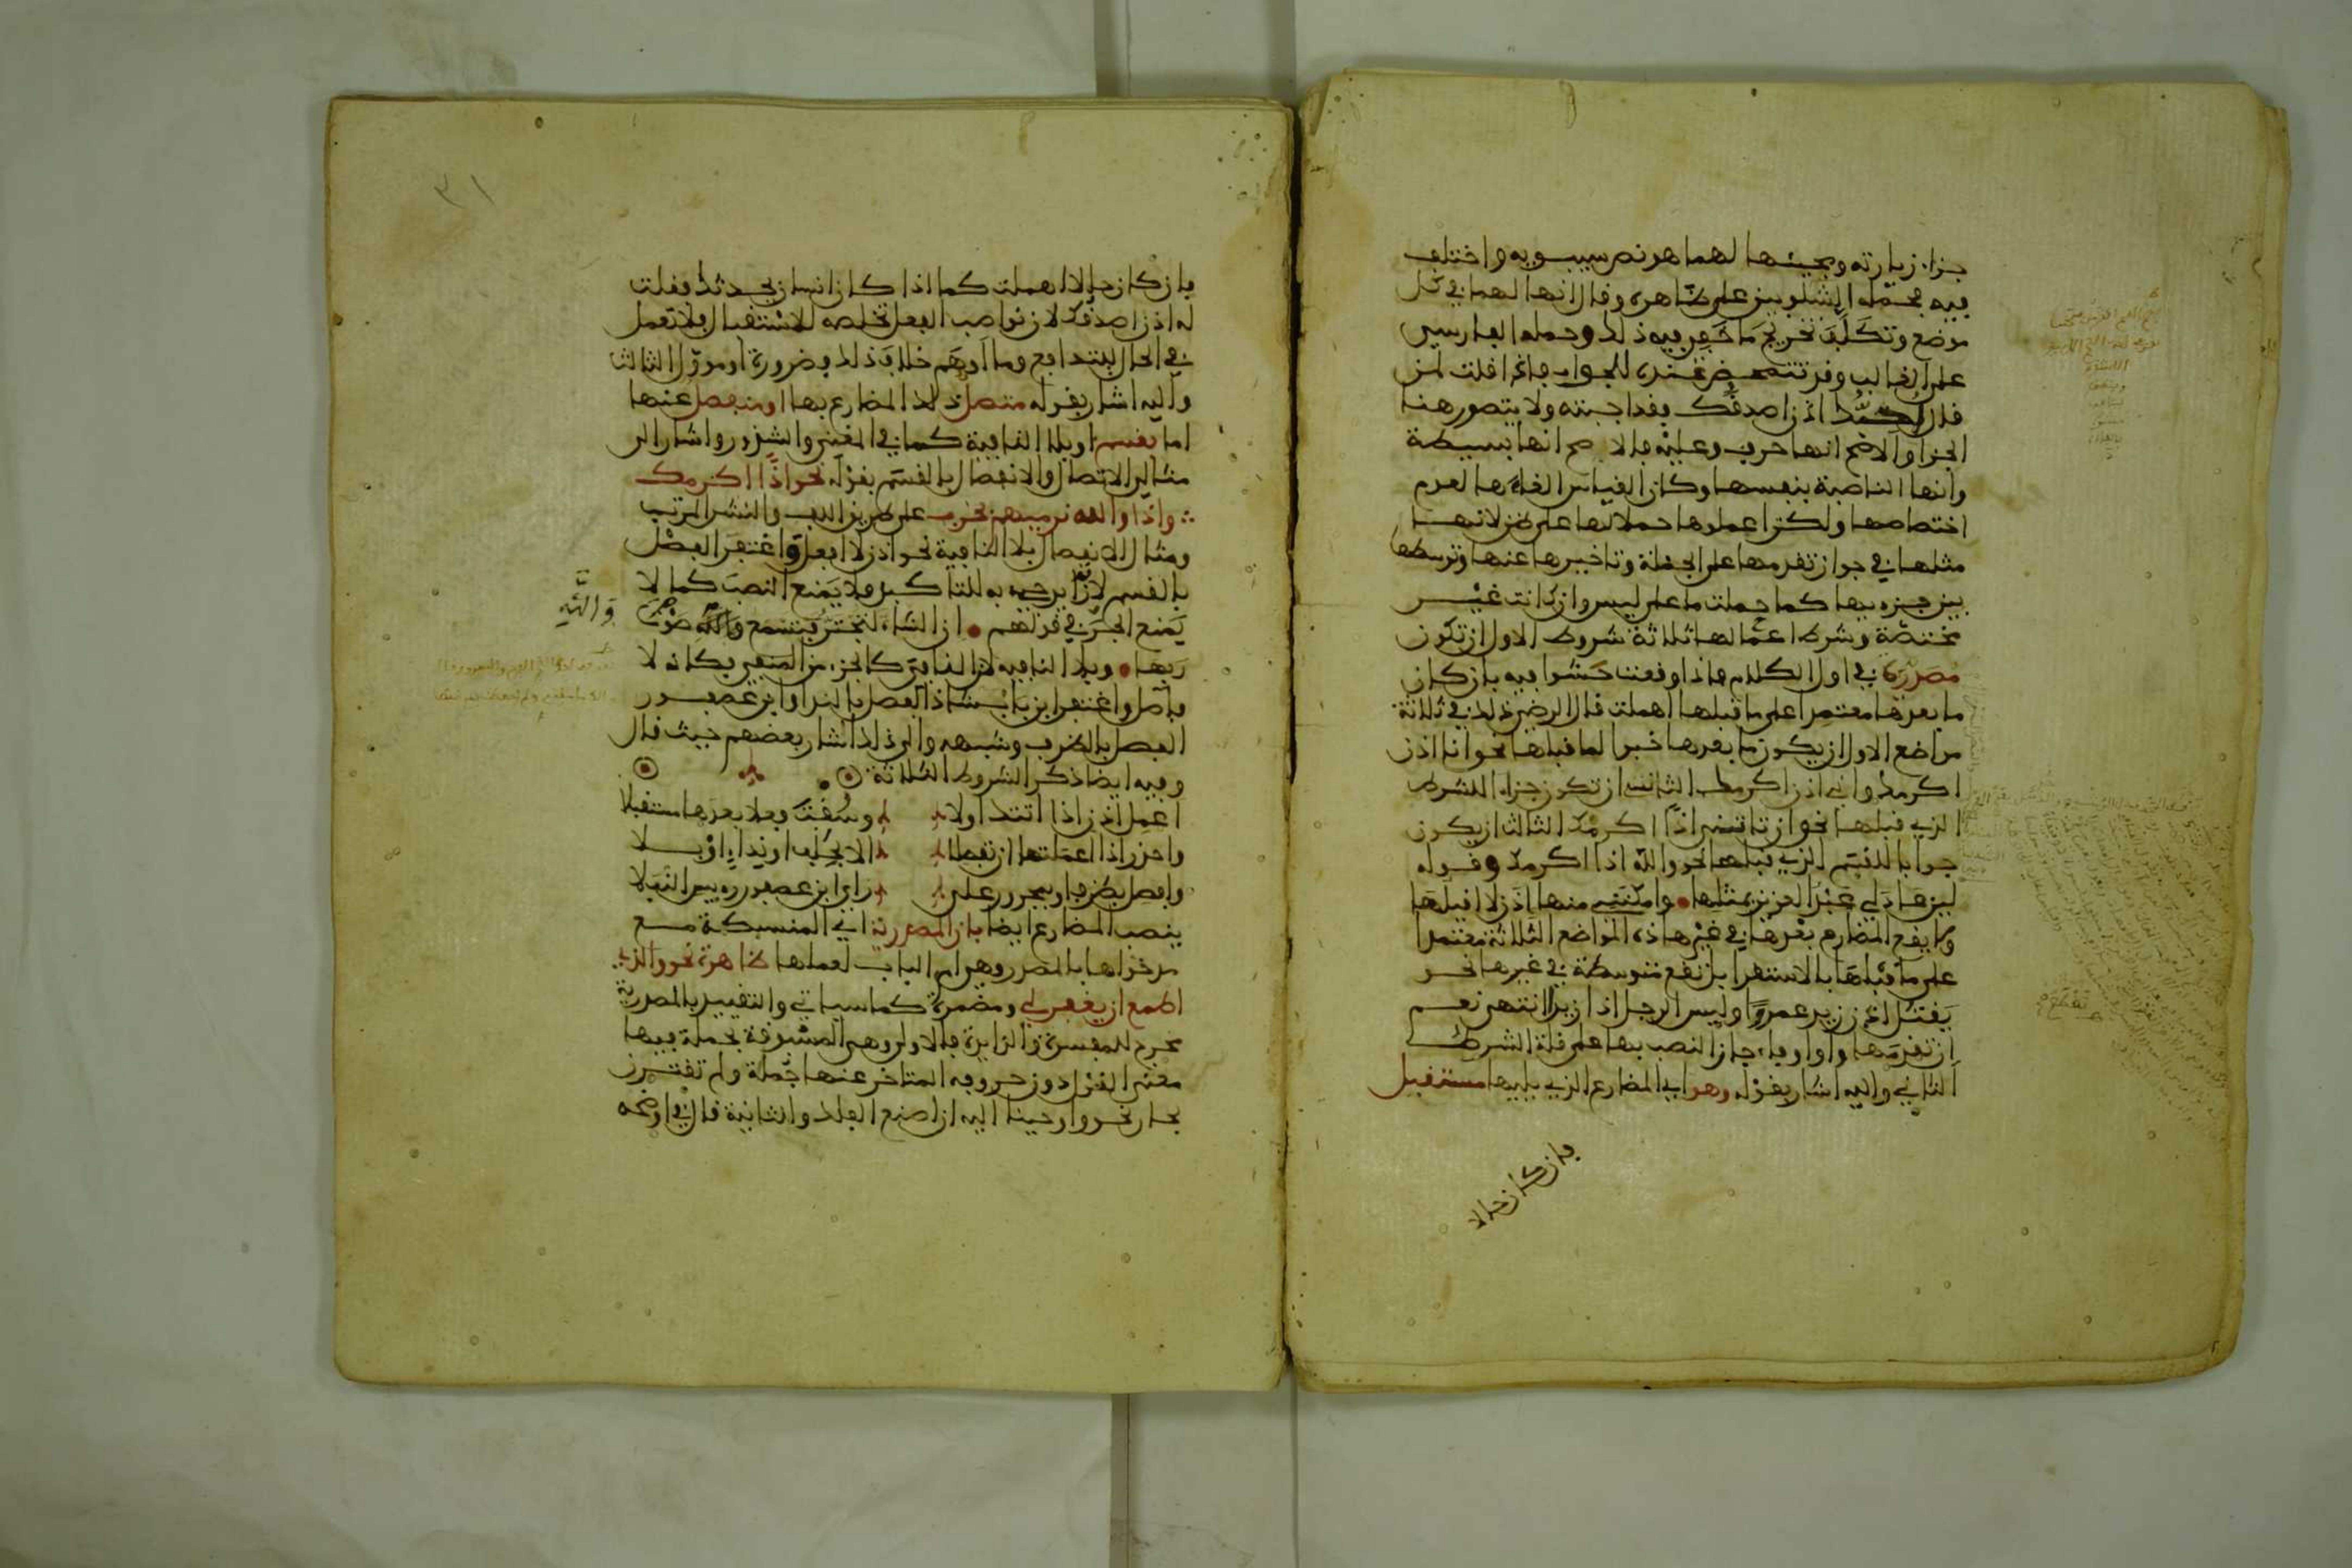 جزاء زيارته ومجيئها لهما هو نص سيبويه واختلف
فيه فحمله الشلوبين على ظاهره وقال انها لهما في كل
موضع وتكلف تخريج ما خفي فيه ذلك وحمله الفارسي
على الغالب وقد تتمحض عنده للجواب فاذا قلت لمن
قال احبك اذن اصدقك فقد اجبته ولا يتصور هنا
الجزا والاصح انها حرف وعليه فالاصح انها بسيطة
وانها الناصبة بنفسها وكان القياس الغاءها لعدم
اختصاصها ولكن اعملوها حملا لها على ظن لانهــا
مثلها في جواز تقدمها على الجملة وتاخيرها عنها وتوسطها
بين جزءيها كما حملت ما على ليس وان كانت غيــر
مختصة وشرط اعمالها ثلاثة شروط الاول ان تكون
مصدرة في اول الكلام فاذا وقعت حشوا فيه بان كان
ما بعدها معتمدا على ما قبلها اهملت قال الرضي وذلك في ثلاثة
مواضع الاول ان يكون ما بعدها خبرا لما قبلها نحو انا اذن
اكرمك واني اذن اكرمك الثاني ان تكون جزاء للشرط
الذي قبلها نحو ان تاتني اذا اكرمك الثالث ان يكون
جوابا للقسم الذي قبلها نحو والله اذا اكرمك وقوله
لين عاد لي عبد العزيز بمثلها • وامكنني منها اذن لا اقيلها
ولا يقع المضارع بعدها في غير هاذه المواضع الثلاثة معتمدا
على ما قبلها بالاستقرا بل تقع متوسطة في غيرها نحو
يقتل اذن زيد عمروا وليس الرجل اذا زيدا انتهى نعم
ان تقدمها واو او فاء جاز النصب بها على قلة الشرط
الثاني واليه اشار بقوله وهو اي المضارع الذي يليها مستقبل
فان كان حالا
٣١
فان كان حالا اهملت كما اذا كان انسان يحدثك فقلت
له اذن اصدقك لان نواصب الفعل تخلصه للاستقبال فلا تعمل
في الحال للتدافع وما اوهم خلاف ذلك فضرورة او مؤول الثالث
واليه اشار بقوله متصل ذلك المضارع بها او منفصل عنها
اما بقسم او بلا النافية كما في المغني والشذور واشار الى
مثالي الاتصال والانفصال بالقسم بقوله نحو اذا اكرمك
واذا والله نرميهم بحرب على طريق اللف والنشر المرتب
ومثال الانفصال بلا النافية نحو اذن لا افعل واغتفر الفصل
بالقسم لانه يوتى به للتاكيد فلا يمنع النصب كما لا
يمنع الجر في قولهم • ان الشاة لتجتر فتسمع صوت
والله
ربها • وبلا النافية لان النافي كالجزء من المنفي فكانه لا
فاصل واغتفر ابن بابشاذ الفصل بالندا وابن عصفــور
الفصل بالظرف وشبهه والى ذلك اشار بعضهم حيث قال
وفيه ايضا ذكر الشروط الثلاثة
اعمل اذن اذا اتتك اولا وسقت فعلا بعدها مستقبلا
واحذر اذا اعملتها ان تفصلا الا بحلف او نداء او بــلا
وافصل بظرف او بمجرور على راي ابن عصفور رييس النبلا
ينصب المضارع ايضا بان المصدرية اي المنسبكة مــع
مدخولها بالمصدر وهي ام الباب لعملها ظاهرة نحو والذي
اطمع ان يغفر لي ومضمرة كما سياتي والتقييد بالمصدرية
مخرج للمفسرة والزايدة فالاولى وهي المسبوقة بجملة فيها
معنى القول دون حروفه المتاخر عنها جملة ولم تقتــرن
بجار نحو واوحينا اليه ان اصنع الفلك والثانية قال في اوضحه